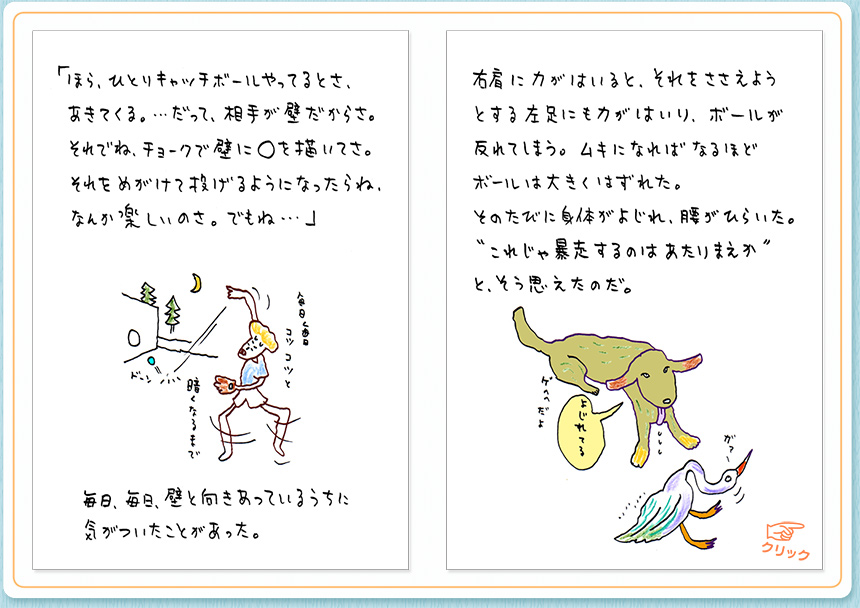 「ほら、ひとりキャッチボールやってるとさ、
あきてくる。…だって、相手が壁だからさ。
それでね、チョークで壁に〇を描いてさ。
それをめがけて投げるようになったらね、
なんか楽しいのさ。でもね…」
毎日毎日
コツコツと
ドーン
暗くなるまで
毎日、毎日、壁と向きあっているうちに
気がついたことがあった。
右肩に力がはいると、それをささえよう
とする左足にも力がはいり、ボールが
反れてしまう。ムキになればなるほど
ボールは大きくはずれた。
そのたびに身体がよじれ、腰がひらいた。
“これじゃ暴走するのはあたりまえか”
と、そう思えたのだ。
ゲへへだよ
よじれてる
がァー
クリック